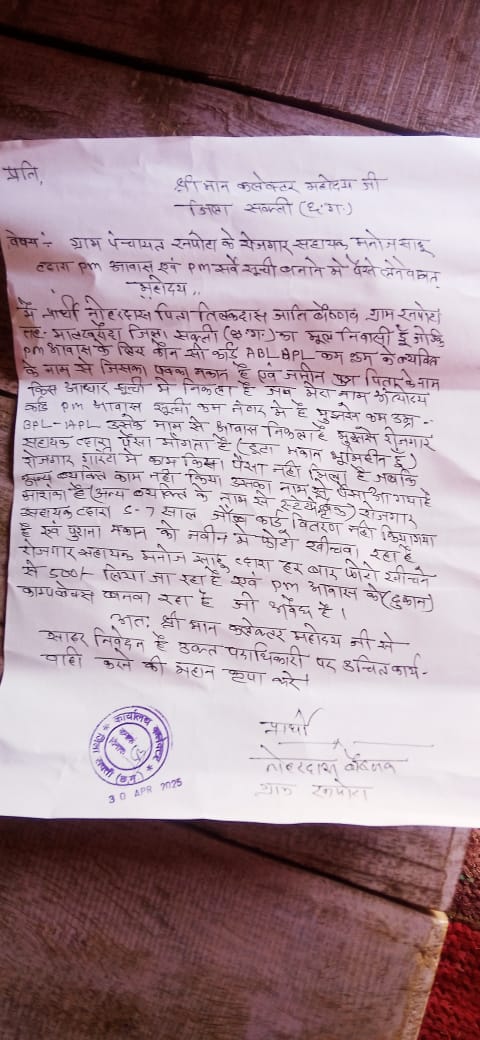 प्रति,
श्री मान कलेक्टर महोदय जी
जिला सक्ती (छ.ग.)
विषय :- ग्राम पंचायत रनपोटा के रोजगार सहायक मनोज साहू
द्वारा pm आवास एवं pm सर्वे सूची बनाने में पैसे लेने बाबत्
महोदय,,
मैं प्रार्थी नोहरदास पिता तिलकदास जाति वैष्णव ग्राम रनपोटा
तह. मालखरौदा जिला सक्ती (छ.ग.) का मूल निवासी हूँ जोकि
pm आवास के लिए कौन सी कार्ड ABL-BPL कम उम्र के व्यक्ति
के नाम से जिसका पक्का मकान है एवं जमीन पिता के नाम
किस आधार सूची में निकला है जब मेरा नाम अंत्योदय
कार्ड pm आवास सूची कम नंबर में है मुझसे कम उम्र
BPL-APL उसके नाम से आवास निकला है मुझसे रोजगार
सहायक द्वारा पैसा माँगता है (टूटा मकान भूमिहीन हूँ)
रोजगार गारंटी में काम किया पैसा नहीं मिला है जबकि
अन्य व्यक्ति काम नहीं किया उसका नाम से पैसा आ गया है
आ रहा है (अन्य व्यक्ति के नाम से) रोजगार
सहायक द्वारा 6-7 साल जॉब कार्ड वितरण नहीं किया गया
है एवं पुराना मकान को नवीन में फोटो खींचवा रहा है
रोजगार सहायक मनोज साहू द्वारा हर बार फोटो खींचने
से 500/- लिया जा रहा है एवं pm आवास के (दुकान)
काम्पलेक्स बनवा रहा है जो अवैध है।
अतः श्री मान कलेक्टर महोदय जी से
सादर निवेदन है उक्त पदाधिकारी पर उचित कार्य-
वाही करने की महान कृपा करें।
प्रार्थी
नोहरदास वैष्णव
ग्राम रनपोटा
कार्यालय कलेक्टर
जिला सक्ती (छ.ग.)
30 APR 2025